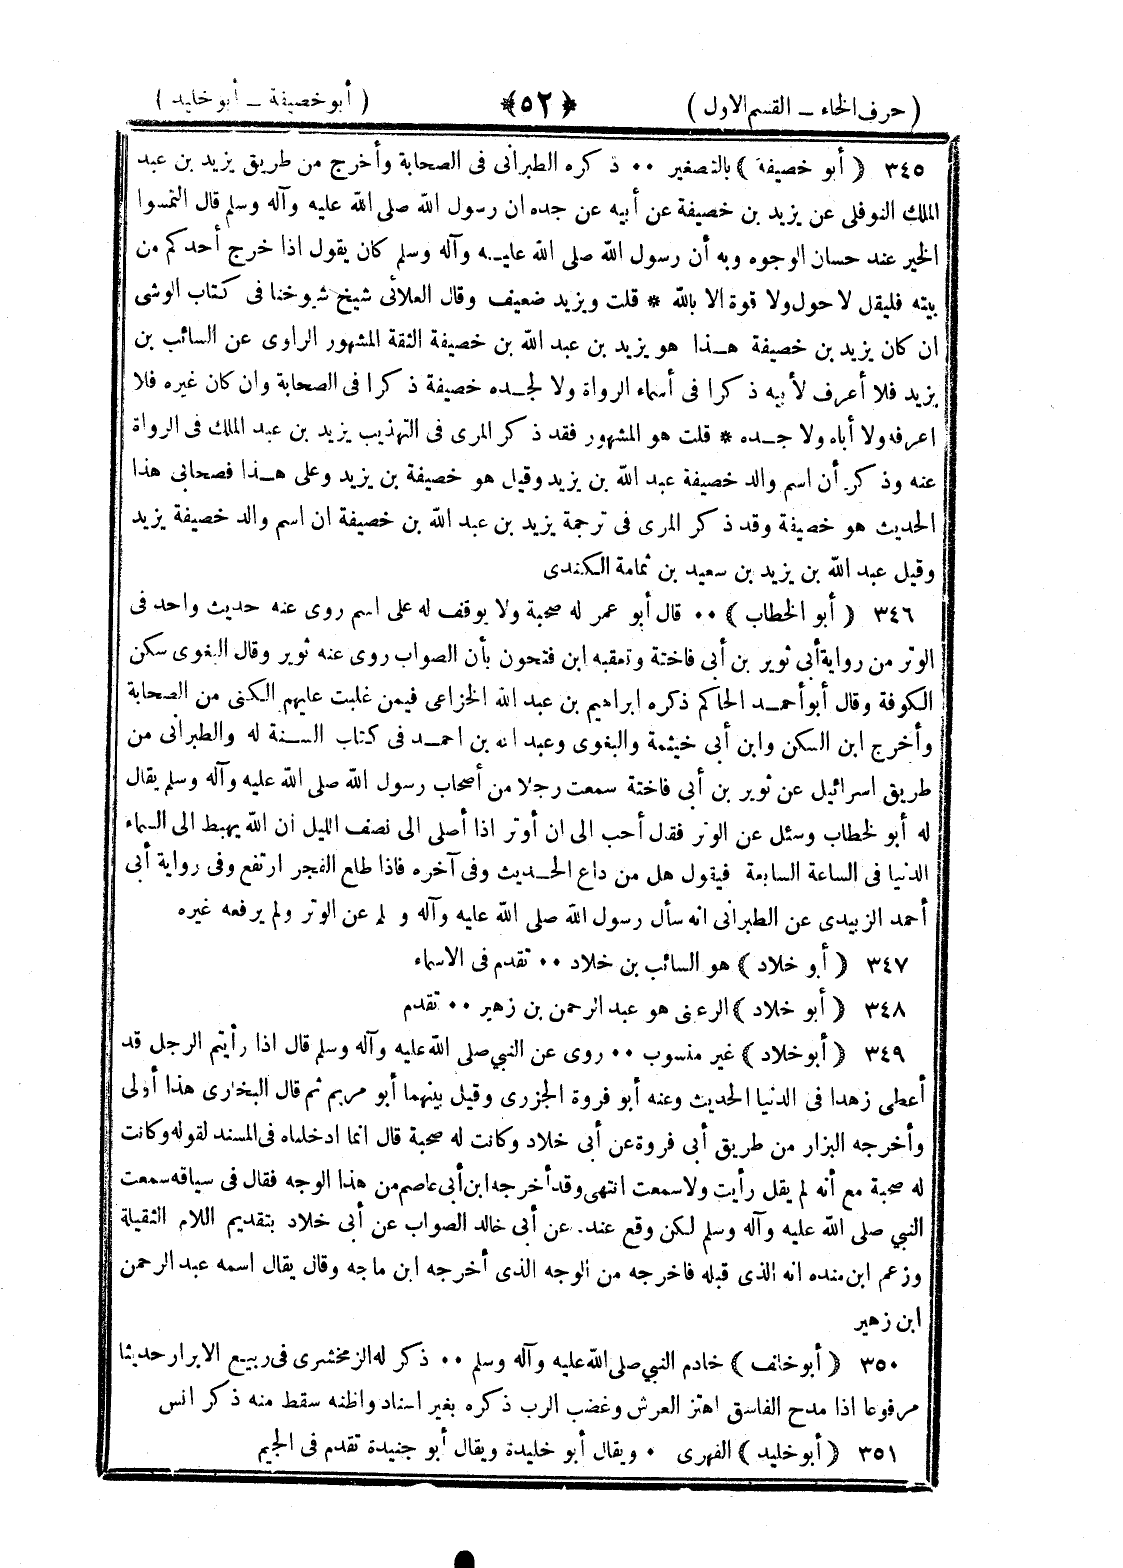 ( حرف الخاء ــ القسم الاول ) ﴿ ٥٢ ﴾ ( أبو خصيفة ــ أبو خليد )
٣٤٥ ﴿ أبو خصيفة ﴾ بالتصغير ٠٠ ذكره الطبرانى فى الصحابة وأخرج من طريق يزيد بن عبد
الملك النوفلى عن يزيد بن خصيفة عن أبيه عن جده ان رسول الله صلى الله عليه وآله وسلم قال التمسوا
الخير عند حسان الوجوه وبه أن رسول الله صلى الله عليه وآله وسلم كان يقول اذا خرج أحدكم من
بيته فليقل لا حول ولا قوة الا بالله * قلت ويزيد ضعيف وقال العلائى شيخ شيوخنا فى كتاب الوشى
ان كان يزيد بن خصيفة هــذا هو يزيد بن عبد الله بن خصيفة الثقة المشهور الراوى عن السائب بن
يزيد فلا أعرف لأبيه ذكرا فى أسماء الرواة ولا لجــده خصيفة ذكرا فى الصحابة وان كان غيره فلا
اعرفه ولا أباه ولا جــده * قلت هو المشهور فقد ذكر المزى فى التهذيب يزيد بن عبد الملك فى الرواة
عنه وذكر أن اسم والد خصيفة عبد الله بن يزيد وقيل هو خصيفة بن يزيد وعلى هــذا فصحابى هذا
الحديث هو خصيفة وقد ذكر المزى فى ترجمة يزيد بن عبد الله بن خصيفة ان اسم والد خصيفة يزيد
وقيل عبد الله بن يزيد بن سعيد بن ثمامة الكندى
٣٤٦ ﴿ أبو الخطاب ﴾ ٠٠ قال أبو عمر له صحبة ولا يوقف له على اسم روى عنه حديث واحد فى
الوتر من رواية أبى ثوير بن أبى فاختة وتعقبه ابن فتحون بأن الصواب روى عنه ثوير وقال البغوى سكن
الكوفة وقال أبو أحمــد الحاكم ذكره ابراهيم بن عبد الله الخزاعى فيمن غلبت عليهم الكنى من الصحابة
وأخرج ابن السكن وابن أبي خيثمة والبغوى وعبد الله بن احمــد فى كتاب السنة له والطبرانى من
طريق اسرائيل عن ثوير بن أبى فاختة سمعت رجلا من أصحاب رسول الله صلى الله عليه وآله وسلم يقال
له أبو لخطاب وسئل عن الوتر فقال أحب الى ان أوتر اذا أصلى الى نصف الليل ان الله يهبط الى السماء
الدنيا فى الساعة السابعة فيقول هل من داع الحــديث وفى آخره فاذا طلع الفجر ارتفع وفى رواية أبى
أحمد الزبيدى عن الطبرانى انه سأل رسول الله صلى الله عليه وآله و لم عن الوتر ولم يرفعه غيره
٣٤٧ ﴿ أبو خلاد ﴾ هو السائب بن خلاد ٠٠ تقدم فى الاسماء
٣٤٨ ﴿ أبو خلاد ﴾ الرعنى هو عبد الرحمن بن زهير ٠٠ تقدم
٣٤٩ ﴿ أبو خلاد ﴾ غير منسوب ٠٠ روى عن النبي صلى الله عليه وآله وسلم قال اذا رأيتم الرجل قد
أعطى زهدا فى الدنيا الحديث وعنه أبو فروة الجزرى وقيل بينهما أبو مريم ثم قال البخارى هذا أولى
وأخرجه البزار من طريق أبى فروة عن أبى خلاد وكانت له صحبة قال انما ادخلناه فى المسند لقوله وكانت
له صحبة مع أنه لم يقل رأيت ولا سمعت انتهى وقد أخرجه ابن أبى عاصم من هذا الوجه فقال فى سياقه سمعت
النبي صلى الله عليه وآله وسلم لكن وقع عنده عن أبى خالد الصواب عن أبى خلاد بتقديم اللام الثقيلة
وزعم ابن منده انه الذى قبله فاخرجه من الوجه الذى أخرجه ابن ماجه وقال يقال اسمه عبد الرحمن
ابن زهير
٣٥٠ ﴿ أبو خلف ﴾ خادم النبي صلى الله عليه وآله وسلم ٠٠ ذكر له الزمخشرى فى ربيع الابرار حديثا
مرفوعا اذا مدح الفاسق اهتز العرش وغضب الرب ذكره بغير اسناد واظنه سقط منه ذكر انس
٣٥١ ﴿ أبو خليد ﴾ الفهرى ٠ ويقال أبو خليدة ويقال أبو جنيدة تقدم فى الجيم